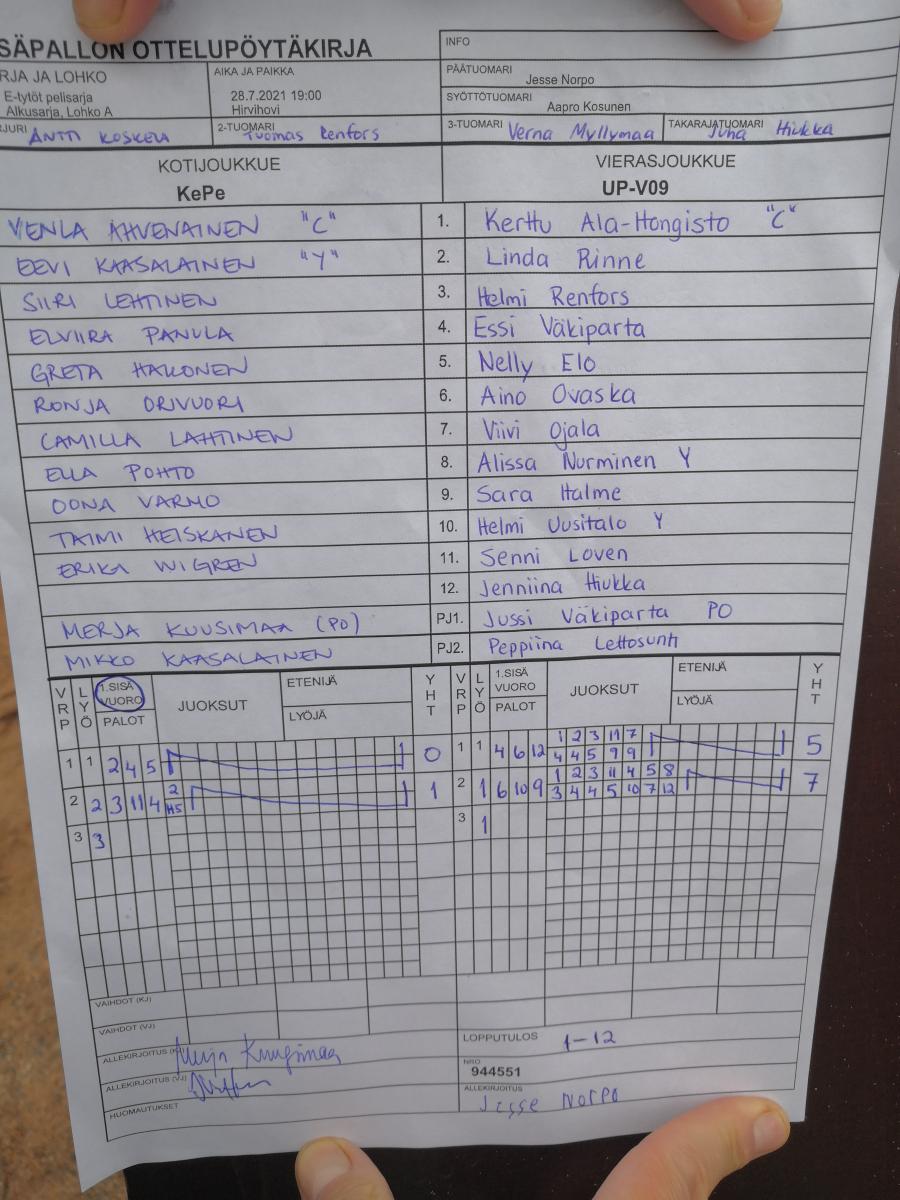 SÄPALLON OTTELUPÖYTÄKIRJA
INFO
RJA JA LOHKO
E-tytöt pelisarja
Alkusarja, Lohko A
AIKA JA PAIKKA
28.7.2021 19:00
Hirvihovi
PÄÄTUOMARI
Jesse Norpo
SYÖTTÖTUOMARI
Aapro Kosunen
RJURI ANTTI KOSKELA
2-TUOMARI Tuomas Renfors
3-TUOMARI Verna Myllymaa
TAKARAJATUOMARI Juha Hiukka
KOTIJOUKKUE
KePe
VIERASJOUKKUE
UP-V09
VENLA AHVENAINEN "C" 1. Kerttu Ala-Hongisto "C"
EEVI KAASALAINEN "Y" 2. Linda Rinne
SIIRI LEHTINEN 3. Helmi Renfors
ELVIIRA PANULA 4. Essi Väkiparta
GRETA HAKONEN 5. Nelly Elo
RONJA ORIVUORI 6. Aino Ovaska
CAMILLA LAHTINEN 7. Viivi Ojala
ELLA POHTO 8. Alissa Nurminen Y
OONA VARMO 9. Sara Halme
TAIMI HEISKANEN 10. Helmi Uusitalo Y
ERIKA WIGREN 11. Senni Loven
12. Jenniina Hiukka
MERJA KUUSIMAA (PO) PJ1. Jussi Väkiparta PO
MIKKO KAASALAINEN PJ2. Peppiina
VRP LYÖ 1.SISÄ VUORO PALOT JUOKSUT ETENIJÄ LYÖJÄ YHT VRP LYÖ 1.SISÄ VUORO PALOT JUOKSUT ETENIJÄ LYÖJÄ YHT
1 1 2 4 5 0 1 1 4 6 12 1 2 3 11 7 5
4 4 5 9 9
2 2 3 11 4 2 1 2 1 6 10 9 1 2 3 11 4 5 8 7
H5 3 4 4 5 10 7 12
3 3 3 1
VAIHDOT (KJ)
VAIHDOT (VJ)
ALLEKIRJOITUS (KJ) Merja Kuusimaa
LOPPUTULOS 1-12
ALLEKIRJOITUS (VJ)
NRO
944551
HUOMAUTUKSET
ALLEKIRJOITUS
Jesse Norpo